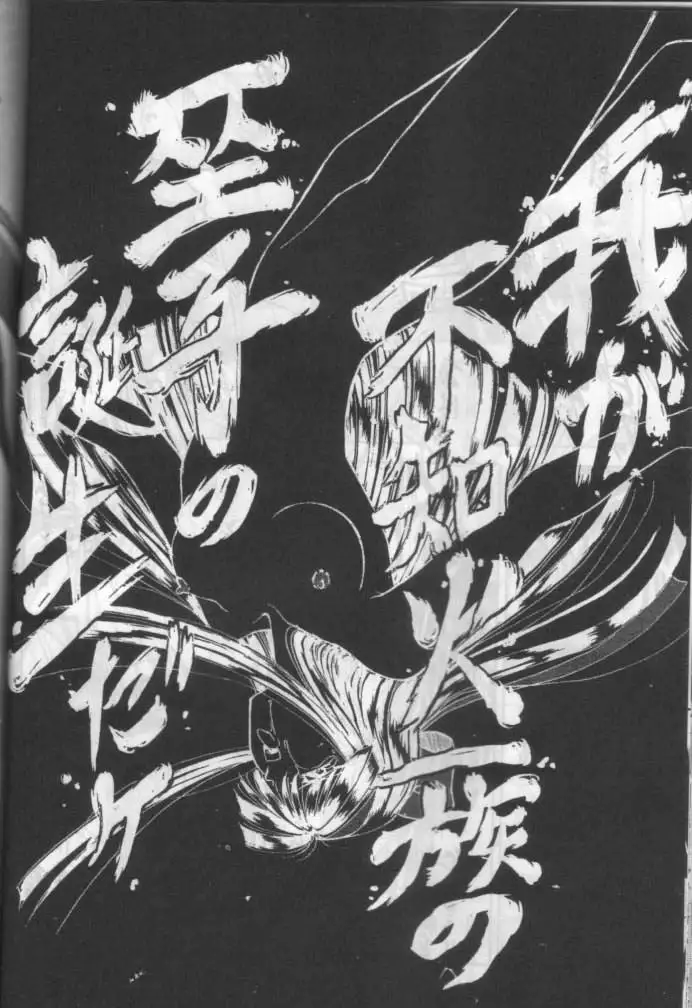 我が
不知火一族の
至子の
誕生だ